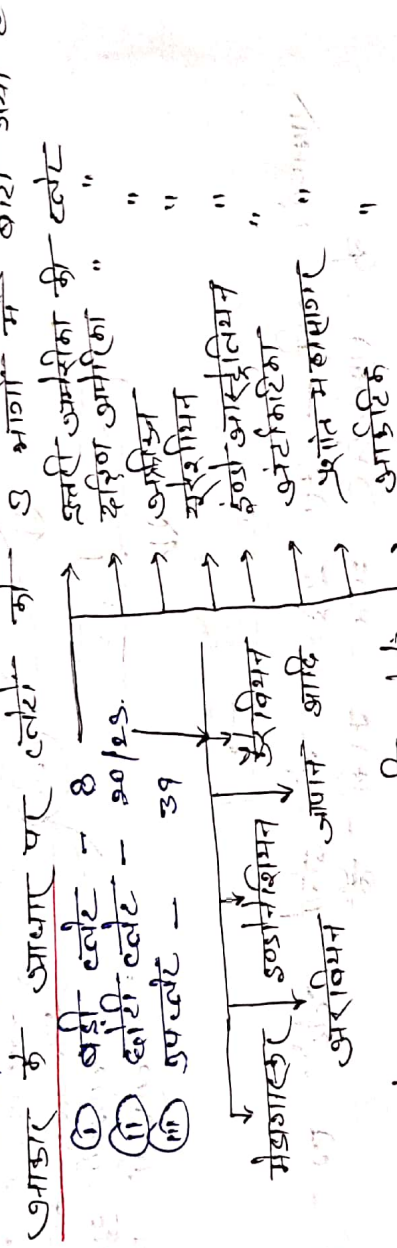 आकार के आधार पर प्लेटों को 3 भागों में बांटा गया है
(I) बड़ी प्लेट - 8
(II) छोटी प्लेट - 20/25.
(III) उपप्लेट - 39
उत्तरी अमेरिका की प्लेट
दक्षिण अमेरिका " "
अफ्रीका "
यूरेशियन "
इण्डो आस्ट्रेलियन "
अंटार्कटिका "
प्रशांत महासागर "
आर्कटिक "
मेडागास्कर
अरेबियन
इण्डोनेशियन
जापान आदि